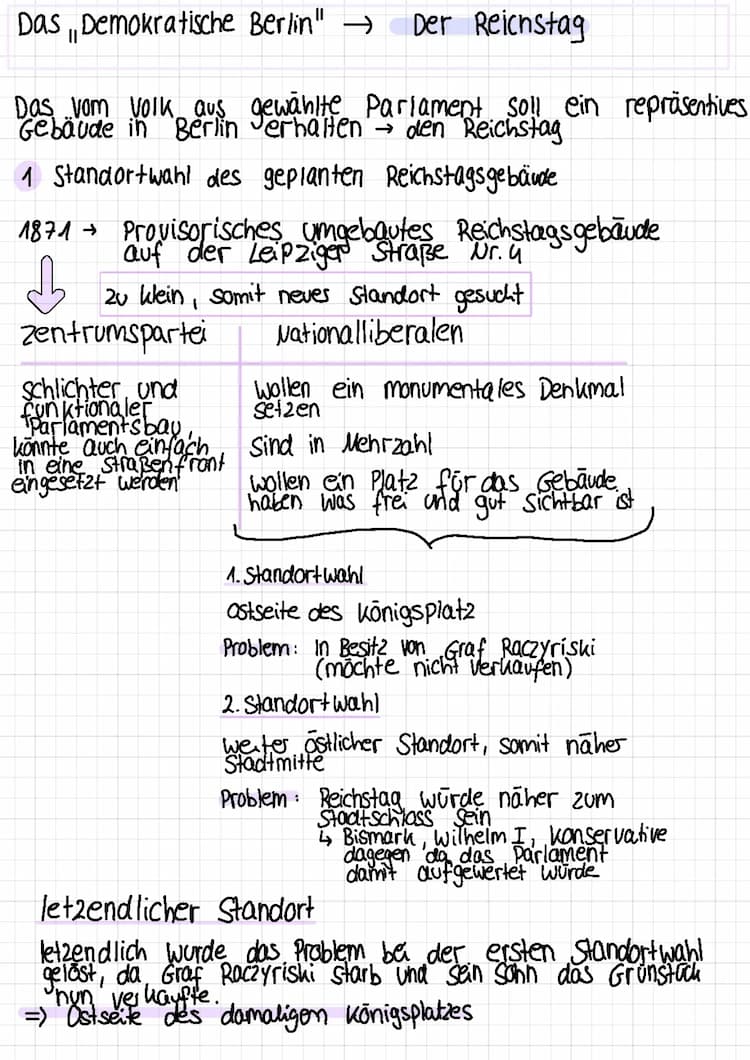 Das „Demokratische Berlin" → Der Reichstag
Das vom Volk aus gewählte Parlament soll ein repräsentives
Gebäude in Berlin erhalten → den Reichstag
1 Standortwahl des geplanten Reichstagsgebäude
1871 → Provisorisches umgebautes Reichstagsgebäude
auf der Leipziger Straße Nr. 4
zu klein, somit neues Standort gesucht
Zentrumspartei
schlichter und
funktionaler
Parlamentsbau,
könnte auch einfach
in eine Straßenfront
eingesetzt werden
Nationalliberalen
wollen ein monumentales Denkmal
setzen
sind in Mehrzahl
wollen ein Platz für das Gebäude
haben was frei und gut sichtbar ist
1. Standortwahl
Ostseite des Königsplatz
Problem: In Besitz von Graf Raczyriski
(möchte nicht verkaufen)
2. Standortwahl
weiter östlicher Standort, somit näher
Stadtmitte
Problem: Reichstag würde näher zum
Stadtschloss sein
↳ Bismark, Wilhelm I, konservative
dagegen da das Parlament
damit aufgewertet würde
letzendlicher Standort
letzendlich wurde das Problem bei der ersten Standortwahl
gelöst, da Graf Raczyriski starb und sein Sohn das Grunstück
nun verkaufte.
⇒ Ostseite des damaligen Königsplatzes